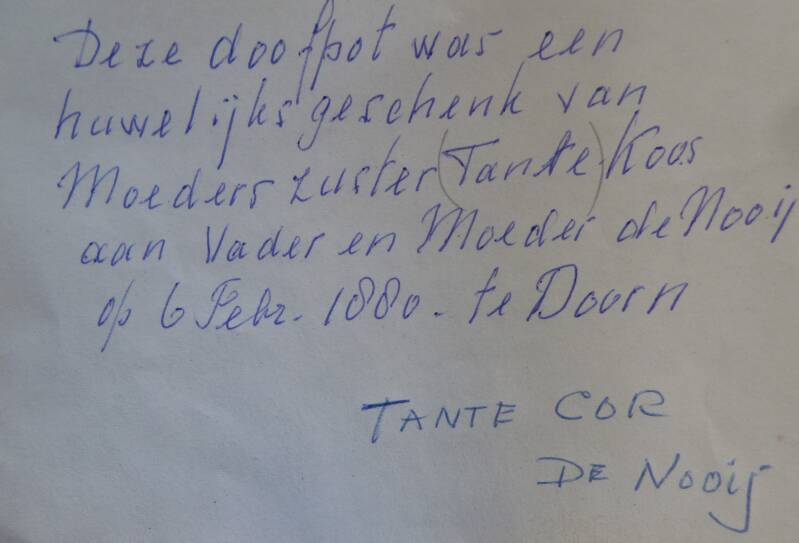 Deze doofpot was een
huwelijksgeschenk van
Moeders zuster (Tante) Koos
aan Vader en Moeder de Nooij
op 6 Febr. 1880. te Doorn
TANTE COR
DE NOOIJ